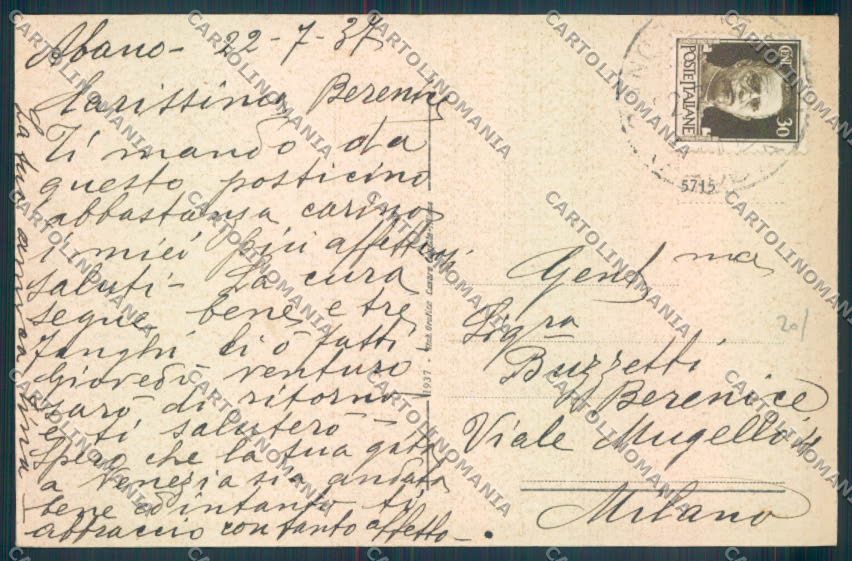 Abano - 22-7-37
Carissima Berenice
Ti mando da
questo posticino
abbastanza carino
i miei più affettuosi
saluti - La cura
segue bene, e tre
fanghi li ò fatti
Giovedì venturo
sarò di ritorno
e ti saluterò -
Spero che la tua gita
a Venezia sia andata
bene ed intanto ti
abbraccio con tanto affetto -
La tua amica
1937 -
POSTE ITALIANE
CENT. 30
5715
Gent ma
Sig ra
Buzzetti
Berenice
Viale Mugello 4
Milano
20/
CARTOLINOMANIA